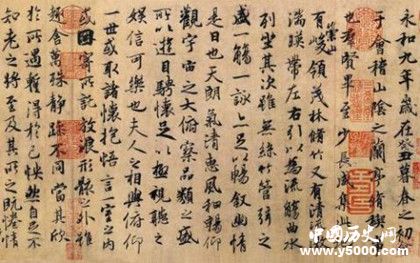 永和九年歲在癸丑暮春之初
于會稽山陰之蘭亭脩禊事
也羣賢畢至少長咸集此
有崇山峻領茂林脩竹又有清流
湍暎帶左右引以為流觴曲水
列坐其次雖無絲竹管弦之
盛一觴一詠亦足以暢敘幽情
是日也天朗氣清惠風和暢仰
觀宇宙之大俯察品類之盛
所以遊目騁懷足以極視聽之
娛信可樂也夫人之相與俯仰
一世或取諸懷抱悟言一室之內
或因寄所託放浪形骸之外雖
趣舍萬殊靜躁不同當其欣
於所遇暫得於己怏然自足不
知老之將至及其所之既惓情
中国历史网
www.y5000.com